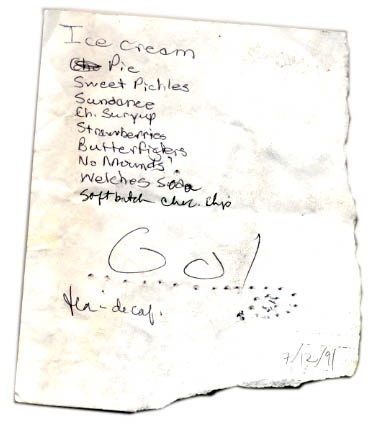 Ice cream
Pie
Sweet Pickles
Sundance
Ch. Suryup
Strawberries
Butterfigers
No Mounds!
Welches Soda
Softbatch choc. chip
tea - decaf.
7/12/91